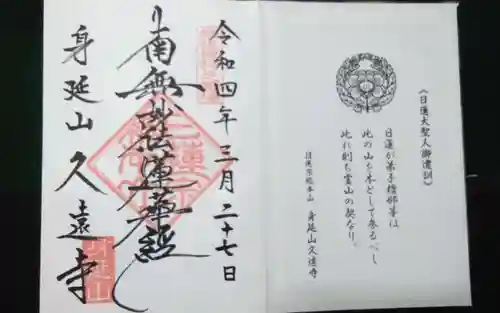 《日蓮大聖人御遺訓》
日蓮が弟子檀那等は
此の山を本として参るべし
此れ則ち霊山の契なり。
日蓮宗総本山 身延山久遠寺
令和四年三月二十七日
南無妙法蓮華経
身延山久遠寺
身延山